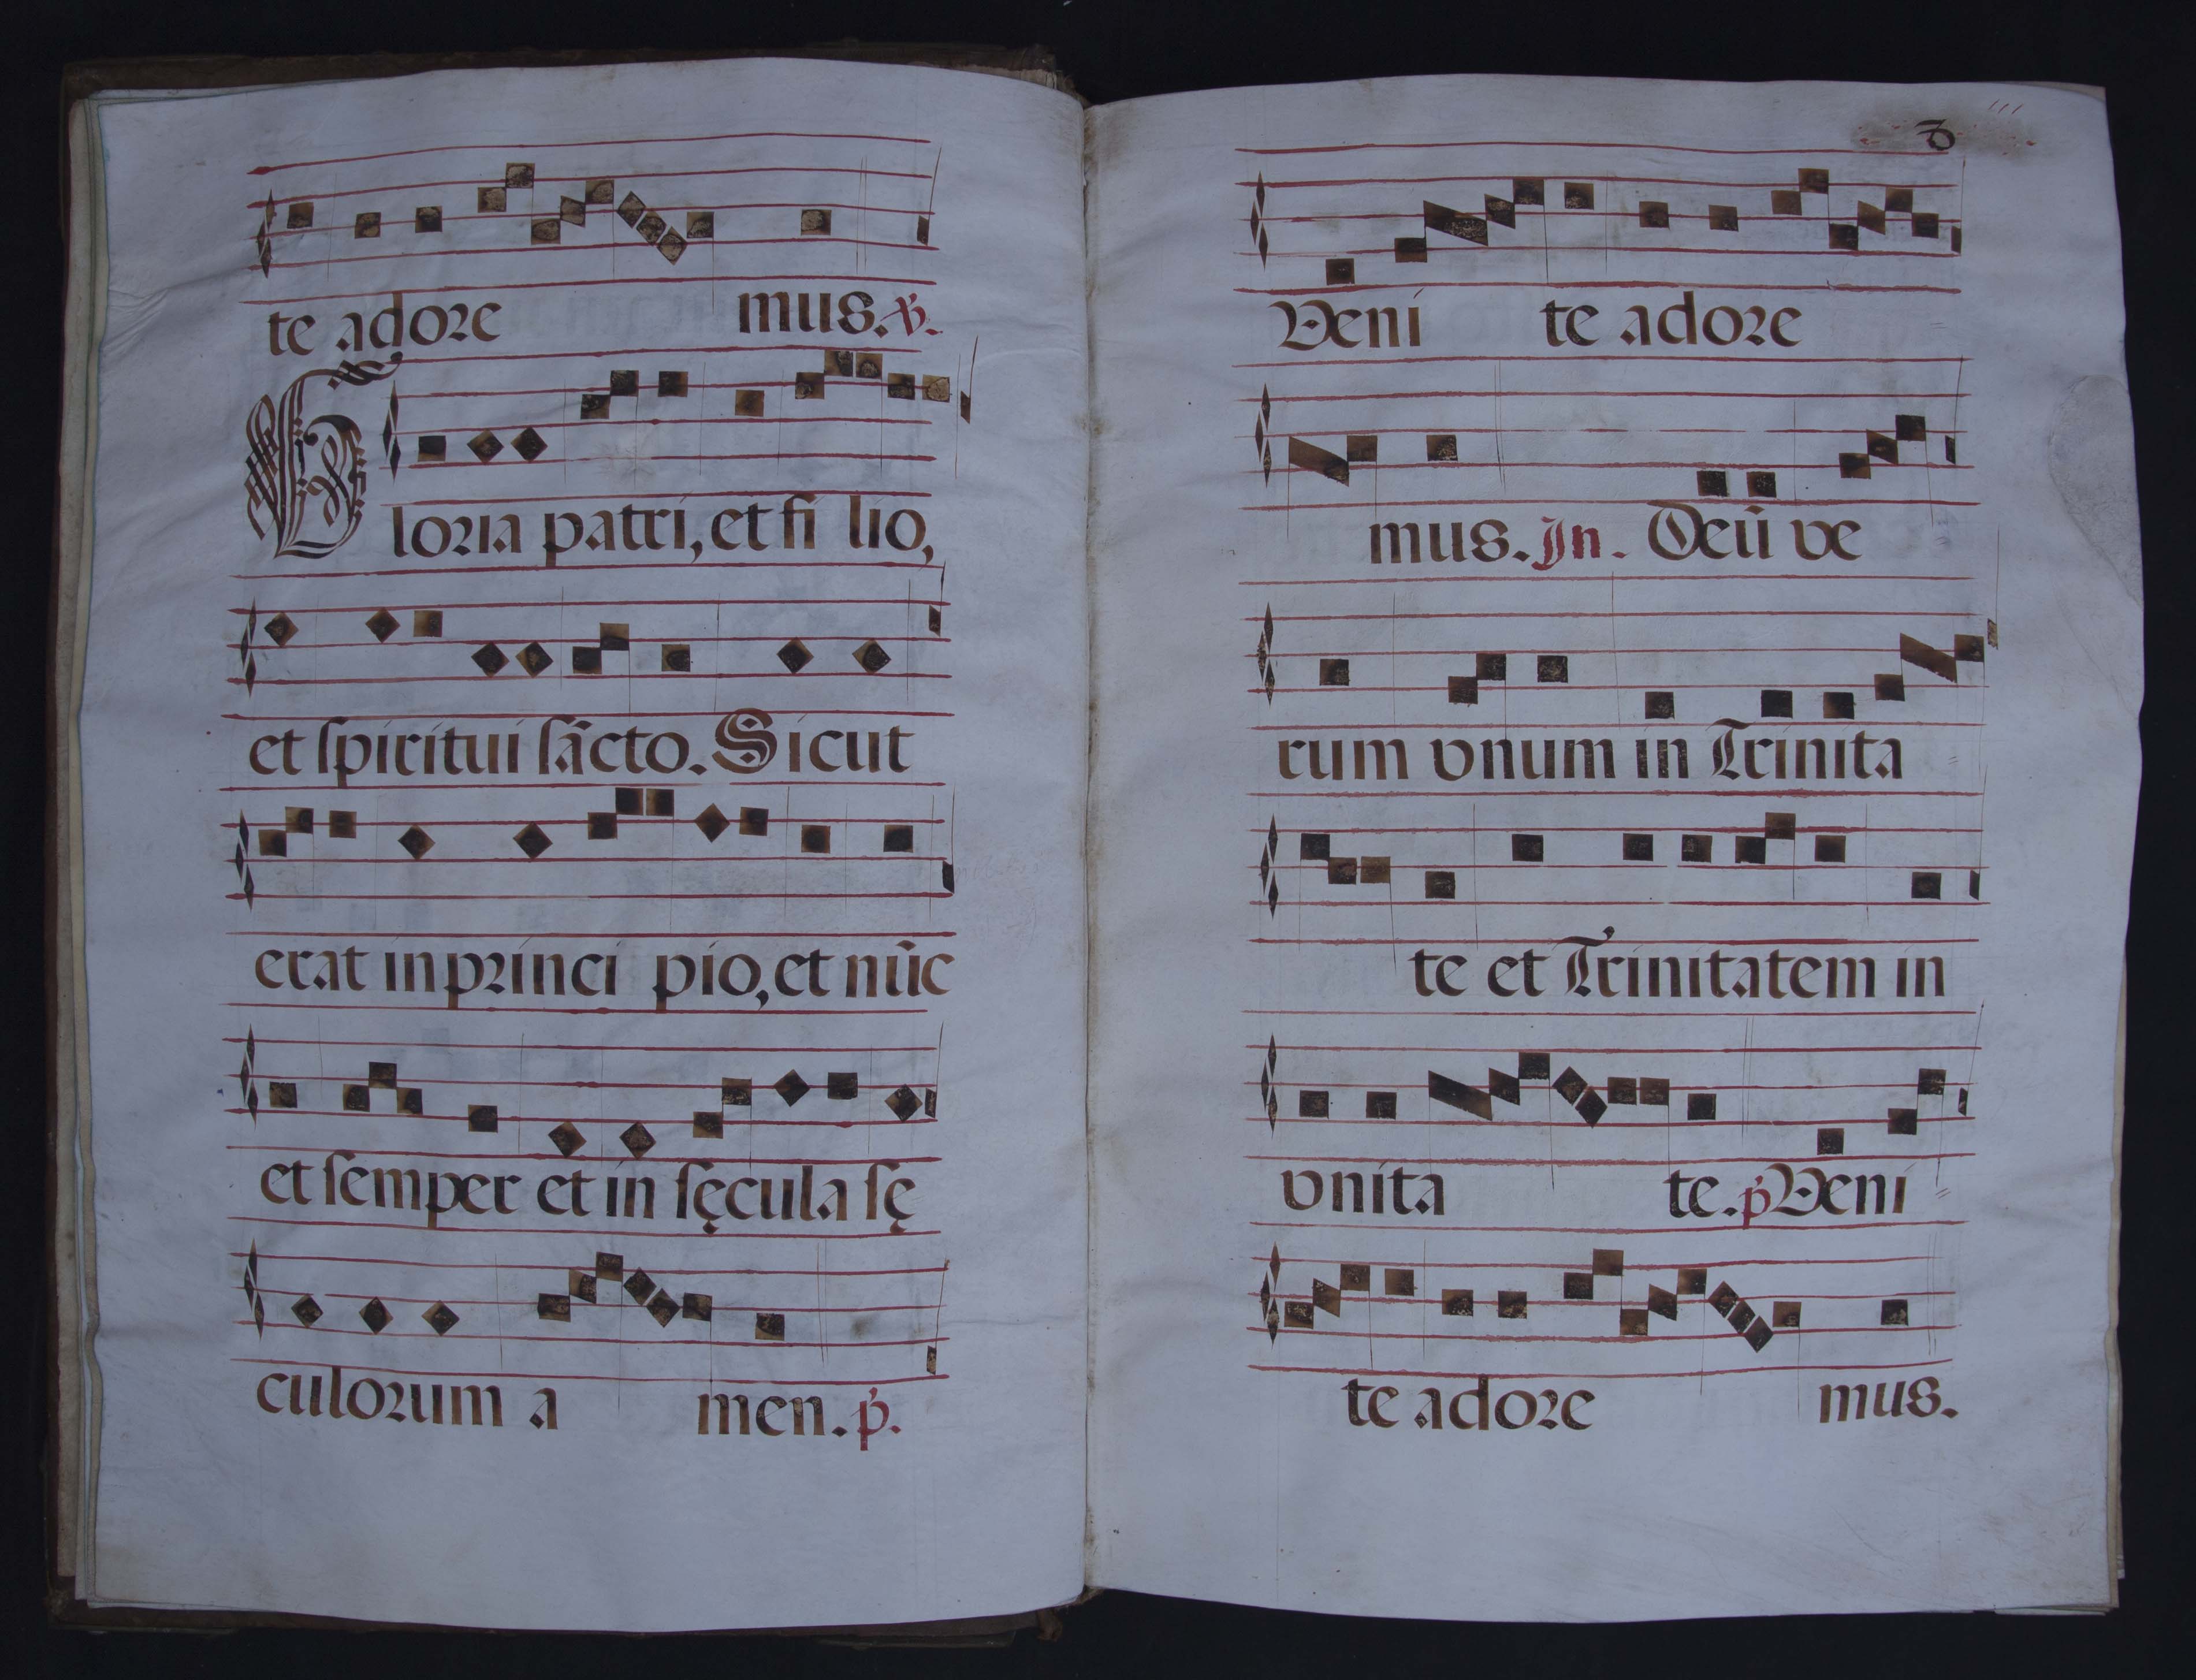 te adore mus. ℣.
Gloria patri, et fi lio,
et ſpiritui ſācto. Sicut
erat in princi pio, et nūc
et ſemper et in ſęcula ſę
culorum a men. p̄.
3
Veni te adore
mus. In. Deū ve
rum vnum in Trinita
te et Trinitatem in
vnita te. p̄ Veni
te adore mus.